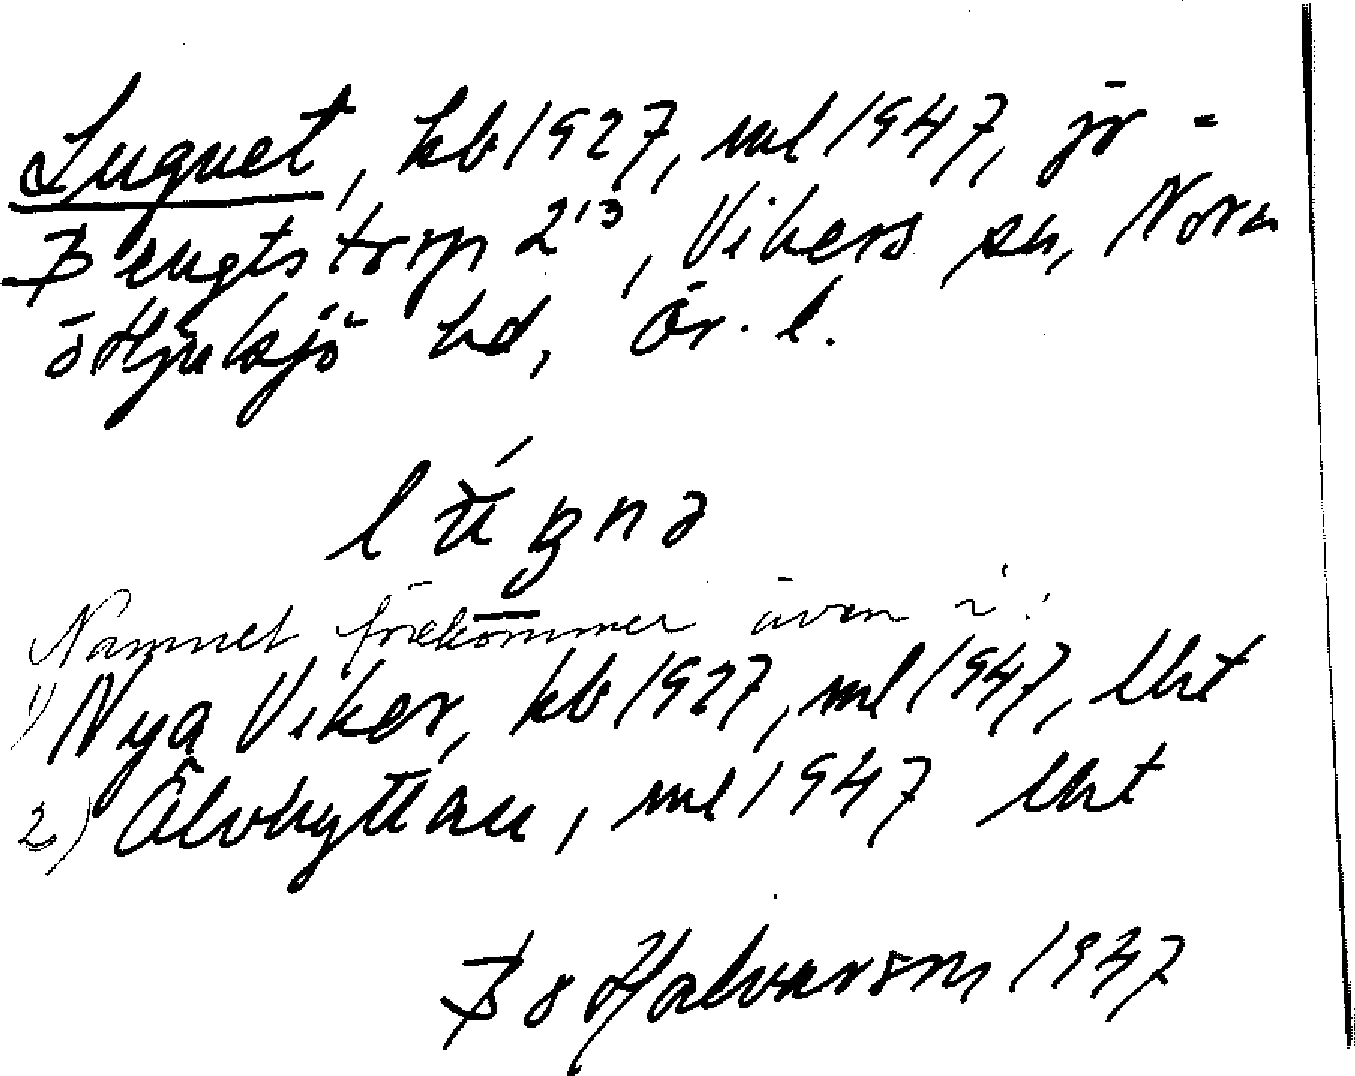 Lugnet, kb 1927, ml 1947, jr -
Bengtstorp 2¹³, Vikers sn, Nora
o Hjulsjö hd, Ör. l.
lúgnə
Namnet förekommer även i:
1) Nya Viker, kb 1927, ml 1947, lht
2) Älvhyttan, ml 1947 lht
Bo Halvarson 1947